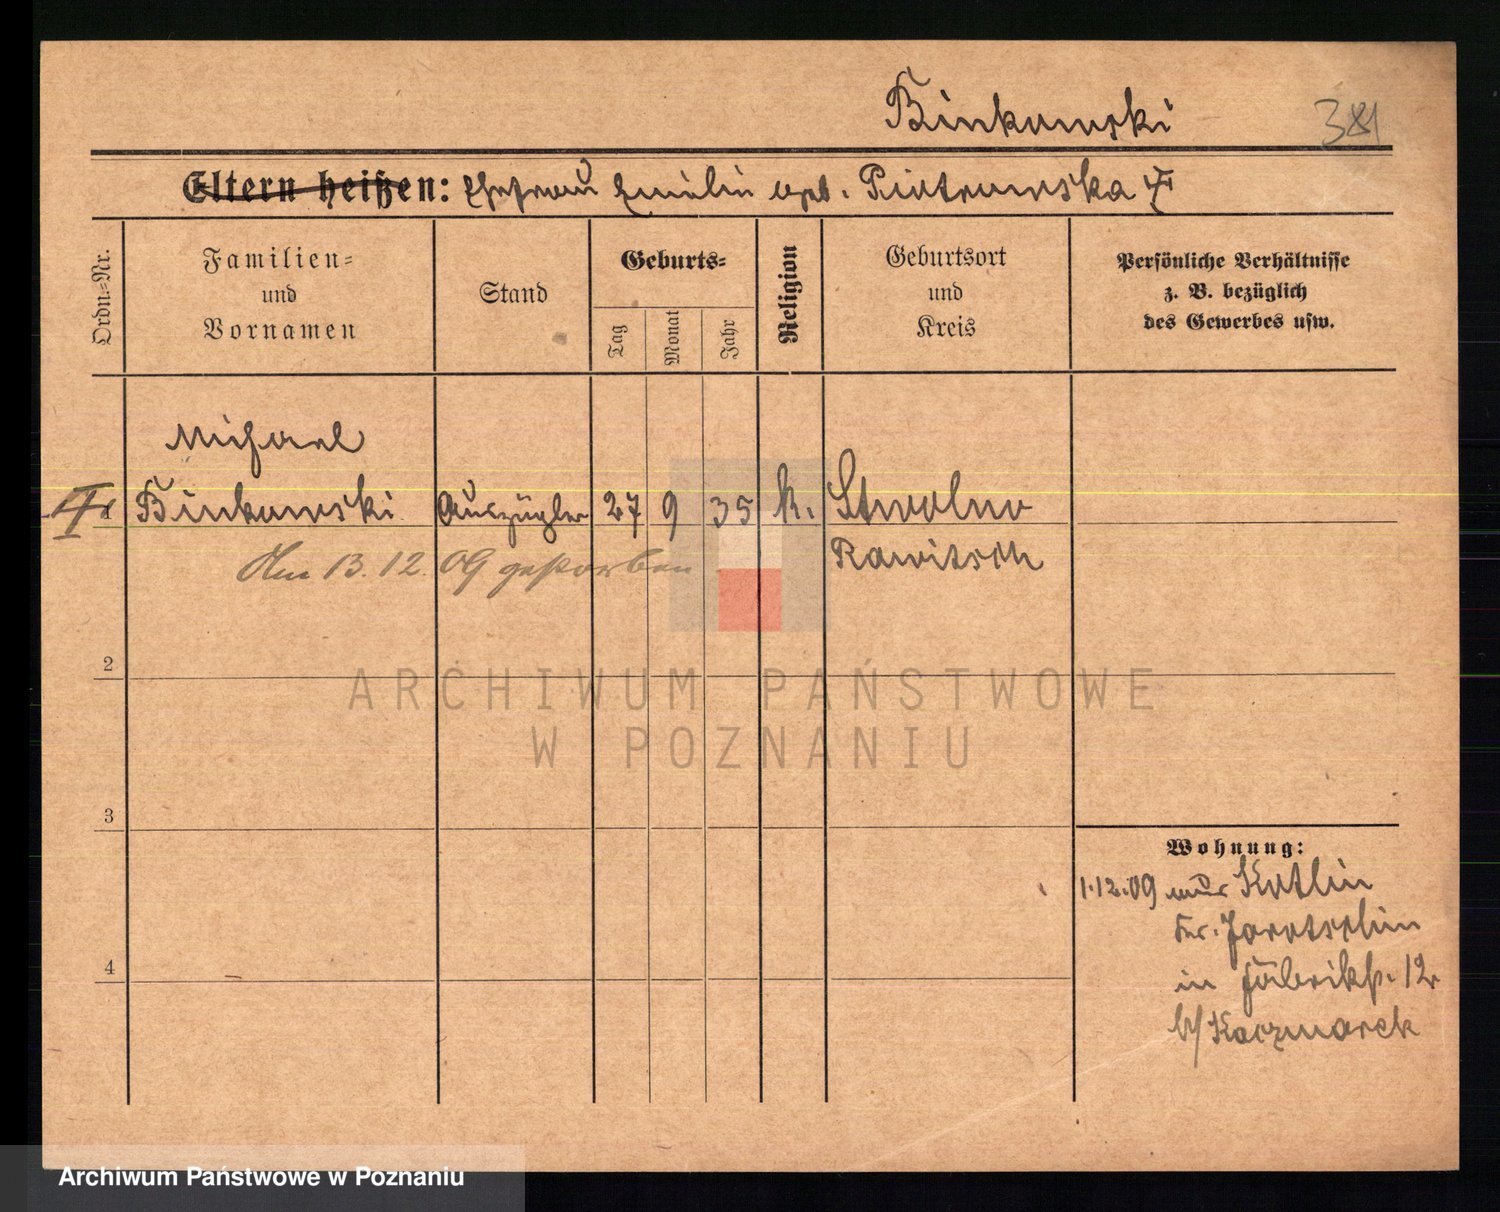 Binkowski
381
Eltern heißen: Ehefrau Emilie geb. Piotrowska †
Ordn.=Nr.
Familien=
und
Vornamen
Stand
Geburts=
Tag
Monat
Jahr
Religion
Geburtsort
und
Kreis
Persönliche Verhältnisse
z. B. bezüglich
des Gewerbes usw.
Michael
1 Binkowski Auszügler 27 9 35 k. Stwolno
Am 13. 12. 09 gestorben Rawitsch
2
3
4
Wohnung:
1.12.09 aus Kotlin
Kr. Jarotschin
in Fabrikstr. 12
b/ Kaczmarek
ARCHIWUM PAŃSTWOWE
W POZNANIU
Archiwum Państwowe w Poznaniu